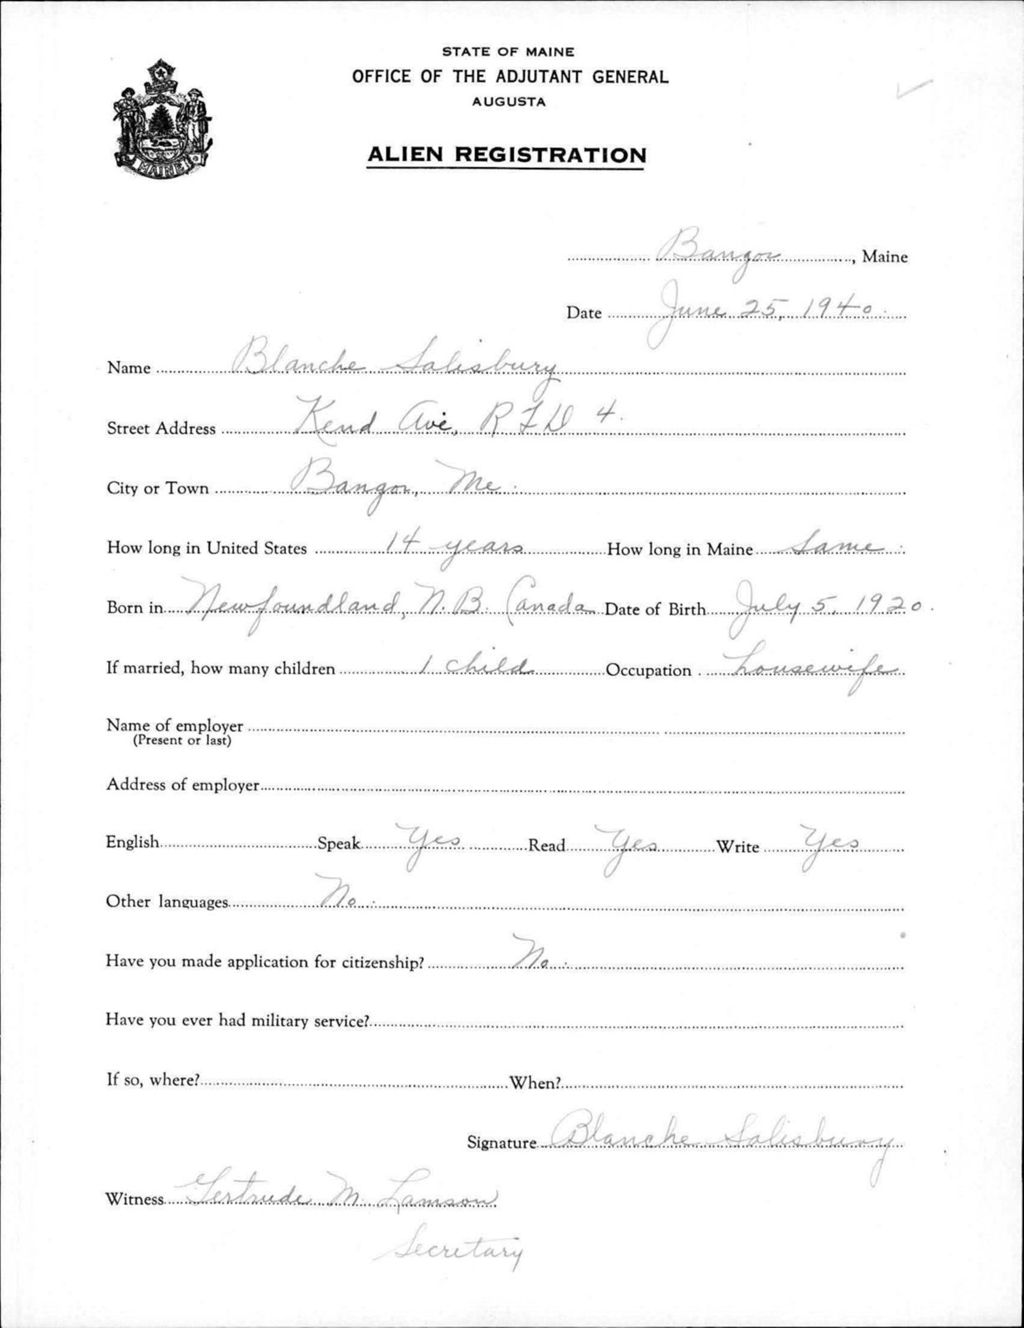 STATE OF MAINE
OFFICE OF THE ADJUTANT GENERAL
AUGUSTA
ALIEN REGISTRATION
MAINE
Bangor, Maine
Date June 25, 1940.
Name Blanche Salisbury
Street Address Kend Ave, R F D 4.
City or Town Bangor, Me.
How long in United States 14 years How long in Maine Same.
Born in Newfoundland, N. B. Canada Date of Birth July 5, 1920.
If married, how many children 1 child Occupation housewife
Name of employer
(Present or last)
Address of employer
English Speak Yes Read Yes Write Yes
Other languages No.
Have you made application for citizenship? No.
Have you ever had military service?
If so, where? When?
Signature Blanche Salisbury
Witness Gertrude M. Lamson
Secretary